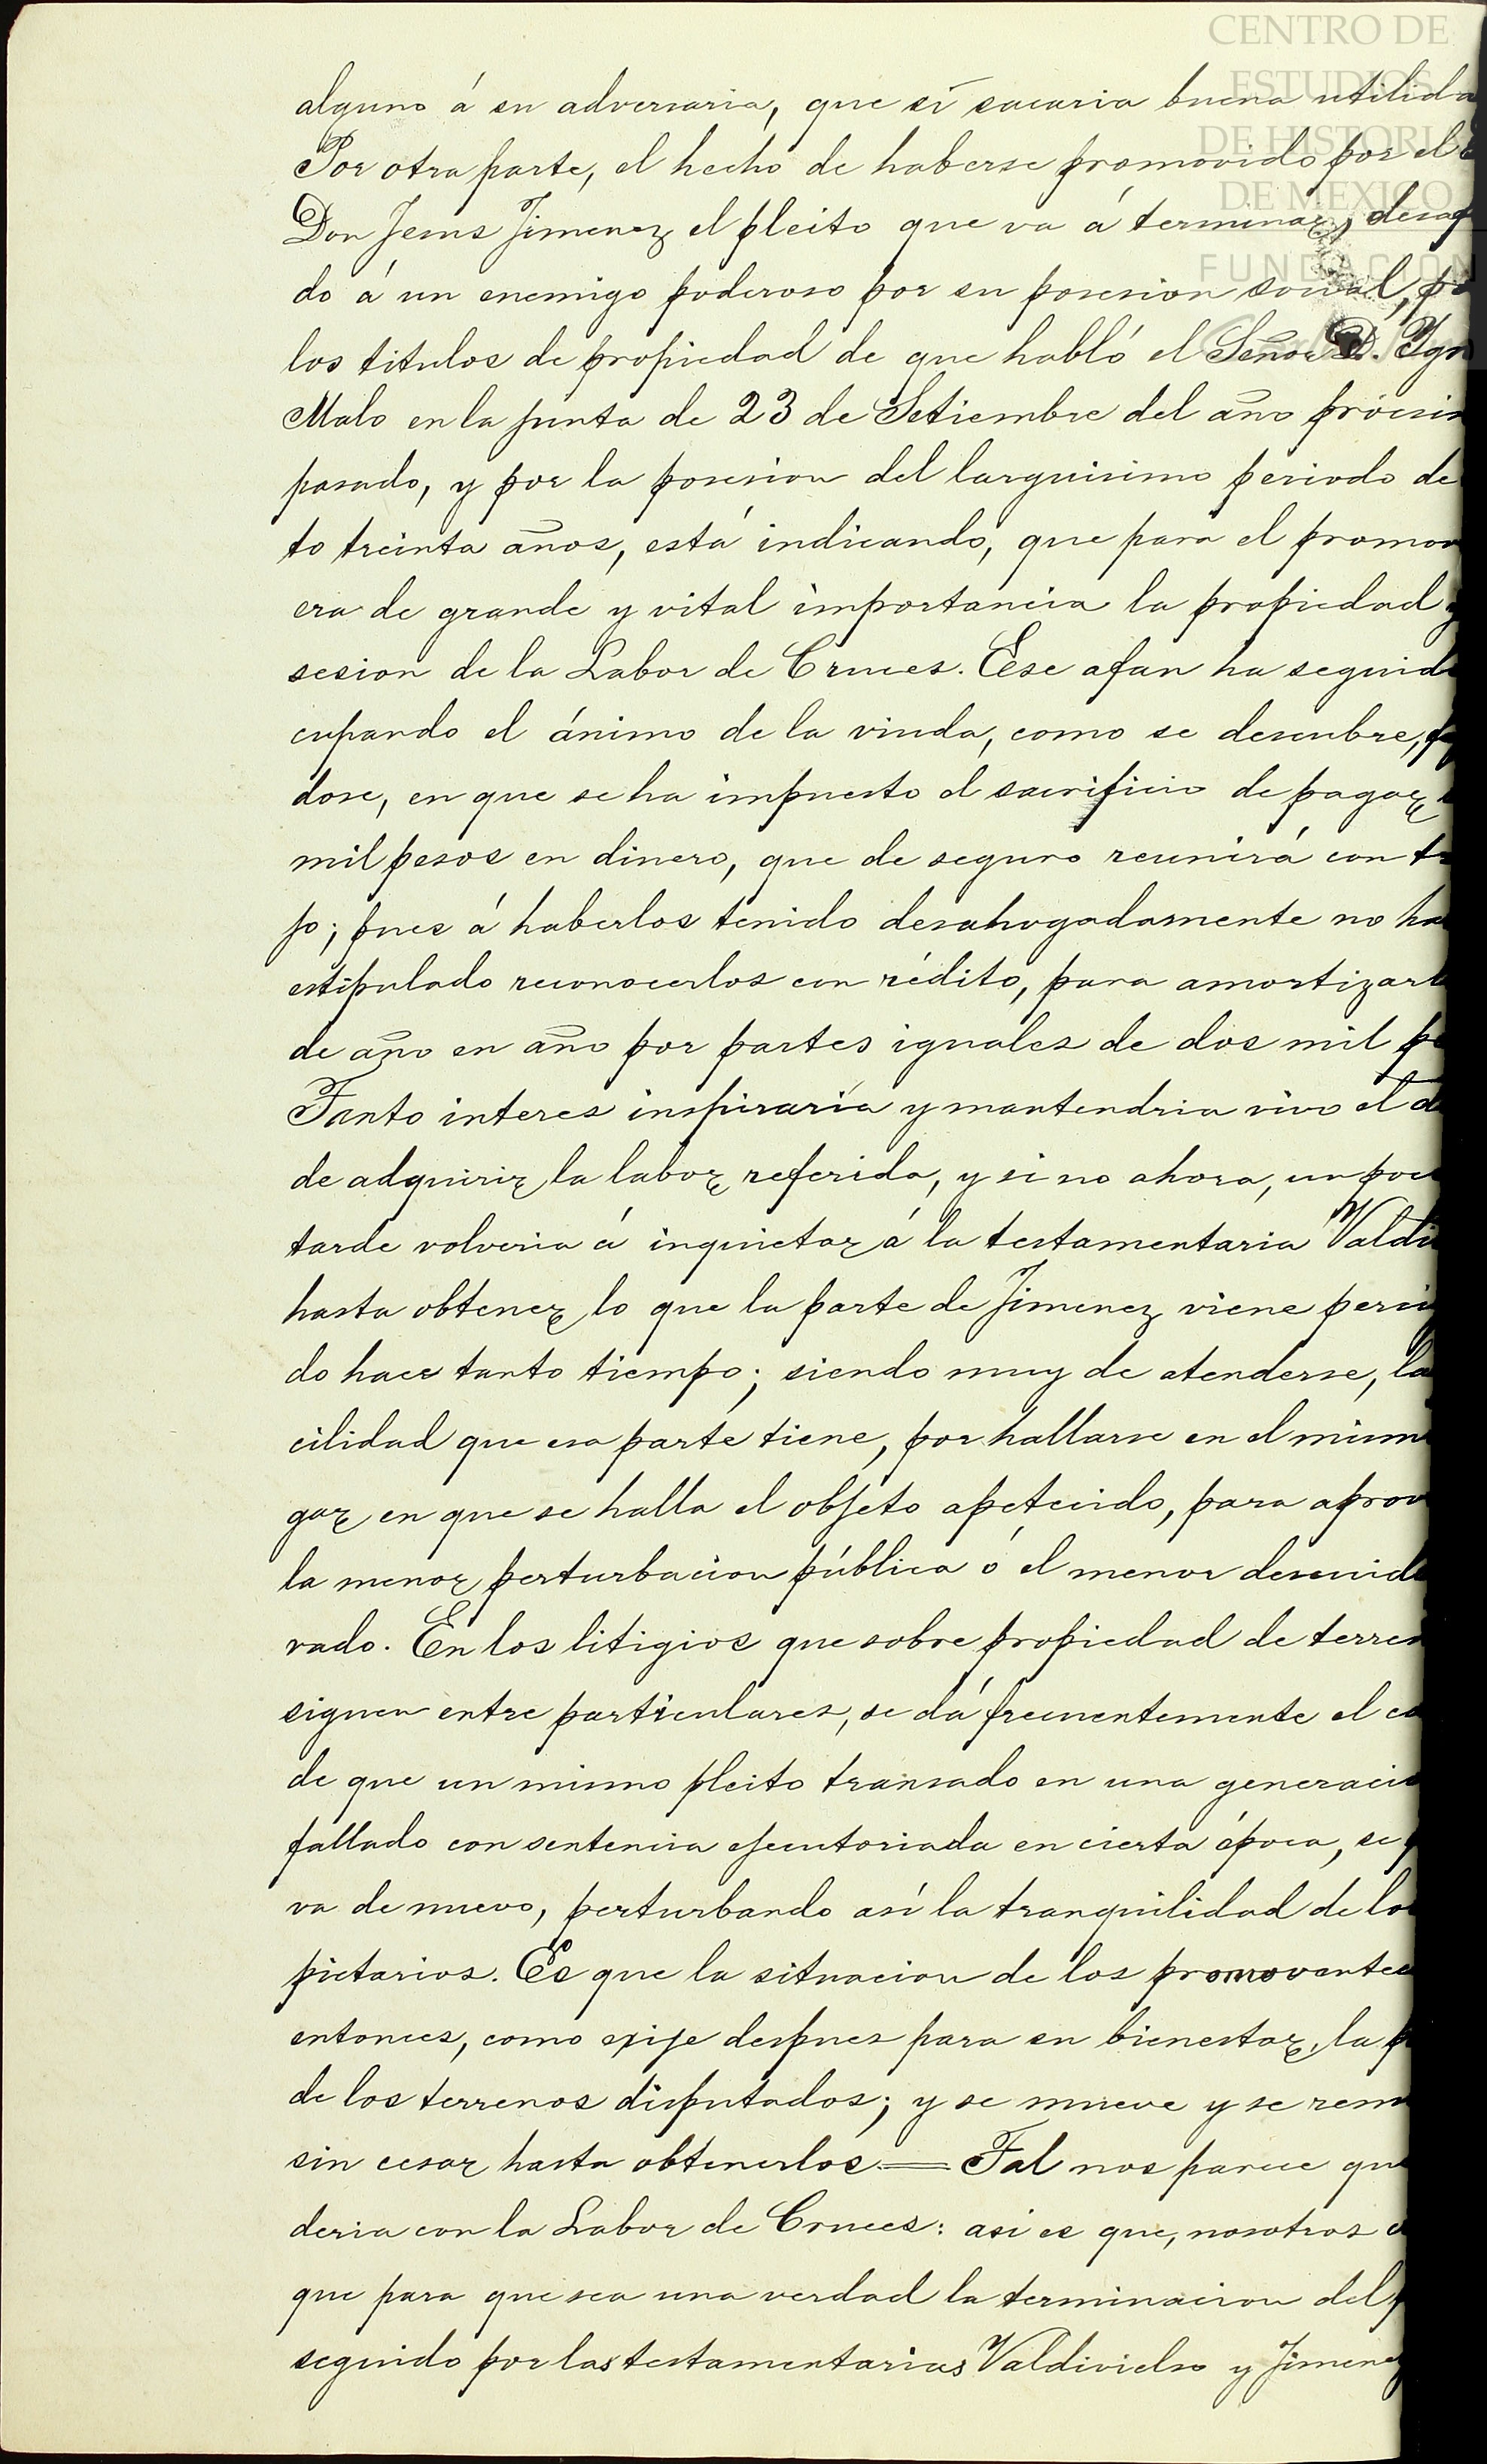 CENTRO DE
ESTUDIOS
DE HISTORIA
DE MEXICO
FUNDACIÓN
alguno á su adversaria, que sí sacaria buena utilida
Por otra parte, el hecho de haberse promovido por el
Don Jesus Jimenez el pleito que va á terminar, desaf
do á un enemigo poderoso por su posesion social, po
los titulos de propiedad de que habló el Señor D. Ygn
Malo en la junta de 23 de Setiembre del año prócsim
pasado, y por la posesion del larguisimo periodo de
to treinta años, está indicando, que para el promov
era de grande y vital importancia la propiedad y
sesion de la Labor de Cruces. Ese afan ha seguido
cupando el ánimo de la viuda, como se descubre,
dose, en que se ha impuesto el sacrificio de pagar
mil pesos en dinero, que de seguro reunirá con tr
jo; pues á haberlos tenido desahogadamente no ha
estipulado reconocerlos con rédito, para amortizarl
de año en año por partes iguales de dos mil pe
Tanto interes inspiraria y mantendria vivo el d
de adquirir la labor referida, y si no ahora, un poco
tarde volveria á inquietar á la testamentaria Valdi
hasta obtener lo que la parte de Jimenez viene persi
do hace tanto tiempo; siendo muy de atenderse, la
cilidad que esa parte tiene, por hallarse en el mism
gar en que se halla el objeto apetecido, para aprov
la menor perturbacion pública ó el menor descuido
vado. En los litigios que sobre propiedad de terren
siguen entre particulares, se dá frecuentemente el ca
de que un mismo pleito transado en una generacio
fallado con sentencia ejecutoriada en cierta época, se
va de nuevo, perturbando así la tranquilidad de los
pietarios. Es que la situacion de los promoventes
entonces, como exije despues para su bienestar, la p
de los terrenos disputados; y se mueve y se rem
sin cesar hasta obtenerlos.= Tal nos parece que
deria con la Labor de Cruces: asi es que, nosotros c
que para que sea una verdad la terminacion del p
seguido por las testamentarias Valdivielso y Jimenez